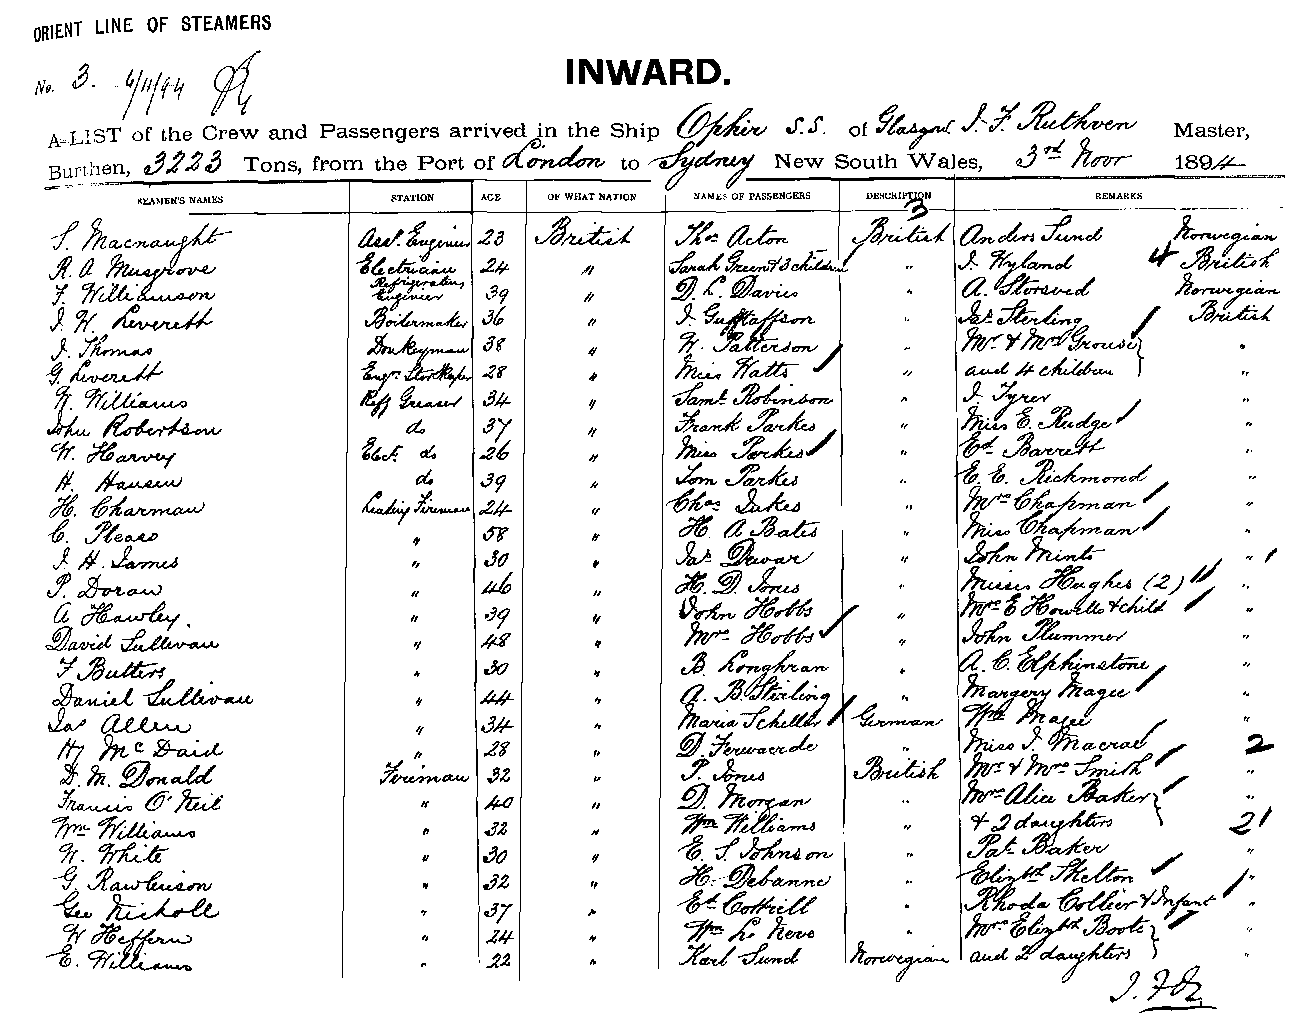 ORIENT LINE OF STEAMERS
No. 3. 6/11/94
INWARD.
A LIST of the Crew and Passengers arrived in the Ship Ophir S.S. of Glasgow J. F. Ruthven Master,
Burthen, 3223 Tons, from the Port of London to Sydney New South Wales, 3rd Novr 1894
SEAMEN'S NAMES STATION AGE OF WHAT NATION NAMES OF PASSENGERS DESCRIPTION REMARKS
3
S. Macnaught Asst. Engineer 23 British Thos Acton British Anders Sund Norwegian
R. A. Musgrove Electrician 24 " Sarah Green & 3 children " J. Hyland 4 British
F. Williamson Refrigerating Engineer 39 " D. L. Davies " A. Storsved Norwegian
J. W. Leverett Boilermaker 36 " J. Gustaffson " Jas Sterling British
J. Thomas Donkeyman 38 " W. Patterson " Mr. & Mrs Grouse "
G. Leverett Engrs Storekeeper 28 " Miss Watts " and 4 children "
W. Williams Refg Greaser 34 " Saml. Robinson " J. Tyrer "
John Robertson do 37 " Frank Parkes " Miss E. Rudge "
W. Harvey Elect. do 26 " Miss Parkes " Ed. Barrett "
H. Hansen do 39 " Tom Parkes " E. E. Richmond "
H. Charman Leading Fireman 24 " Chas Jukes " Mrs Chapman "
C. Please " 58 " H. A Bates " Miss Chapman "
J. H. James " 30 " Jas. Dewar " John Mints "
P. Doran " 46 " H. D. Jones " Misses Hughes (2) "
A Hawley. " 39 " John Hobbs " Mrs E Howells & child "
David Sullivan " 48 " Mrs Hobbs " John Plummer "
F Butters " 30 " B. Loughran " A. C. Elphinstone "
Daniel Sullivan " 44 " A. B. Stirling " Margery Magee "
Jas Allen " 34 " Maria Scheller German Wm Magee "
Hy McDaid " 28 " D. Ferwaerde " Miss J. Macrae 2
D. M. Donald Fireman 32 " P. Jones British Mr. & Mrs Smith "
Francis O'Neil " 40 " D. Morgan " Mrs Alice Baker "
Wm Williams " 32 " Wm Williams " & 2 daughters 2
W. White " 30 " E. S. Johnson " Pat. Baker "
G. Rawlinson " 32 " H. Debanne " Elizth Skelton "
Geo Nicholl " 37 " Ed. Cottrell " Rhoda Collier & Infant "
W Heffern " 24 " Wm Le Neve " Mrs Elizth Boots "
E. Williams " 22 " Karl Sund Norwegian and 2 daughters "
J. F. R.